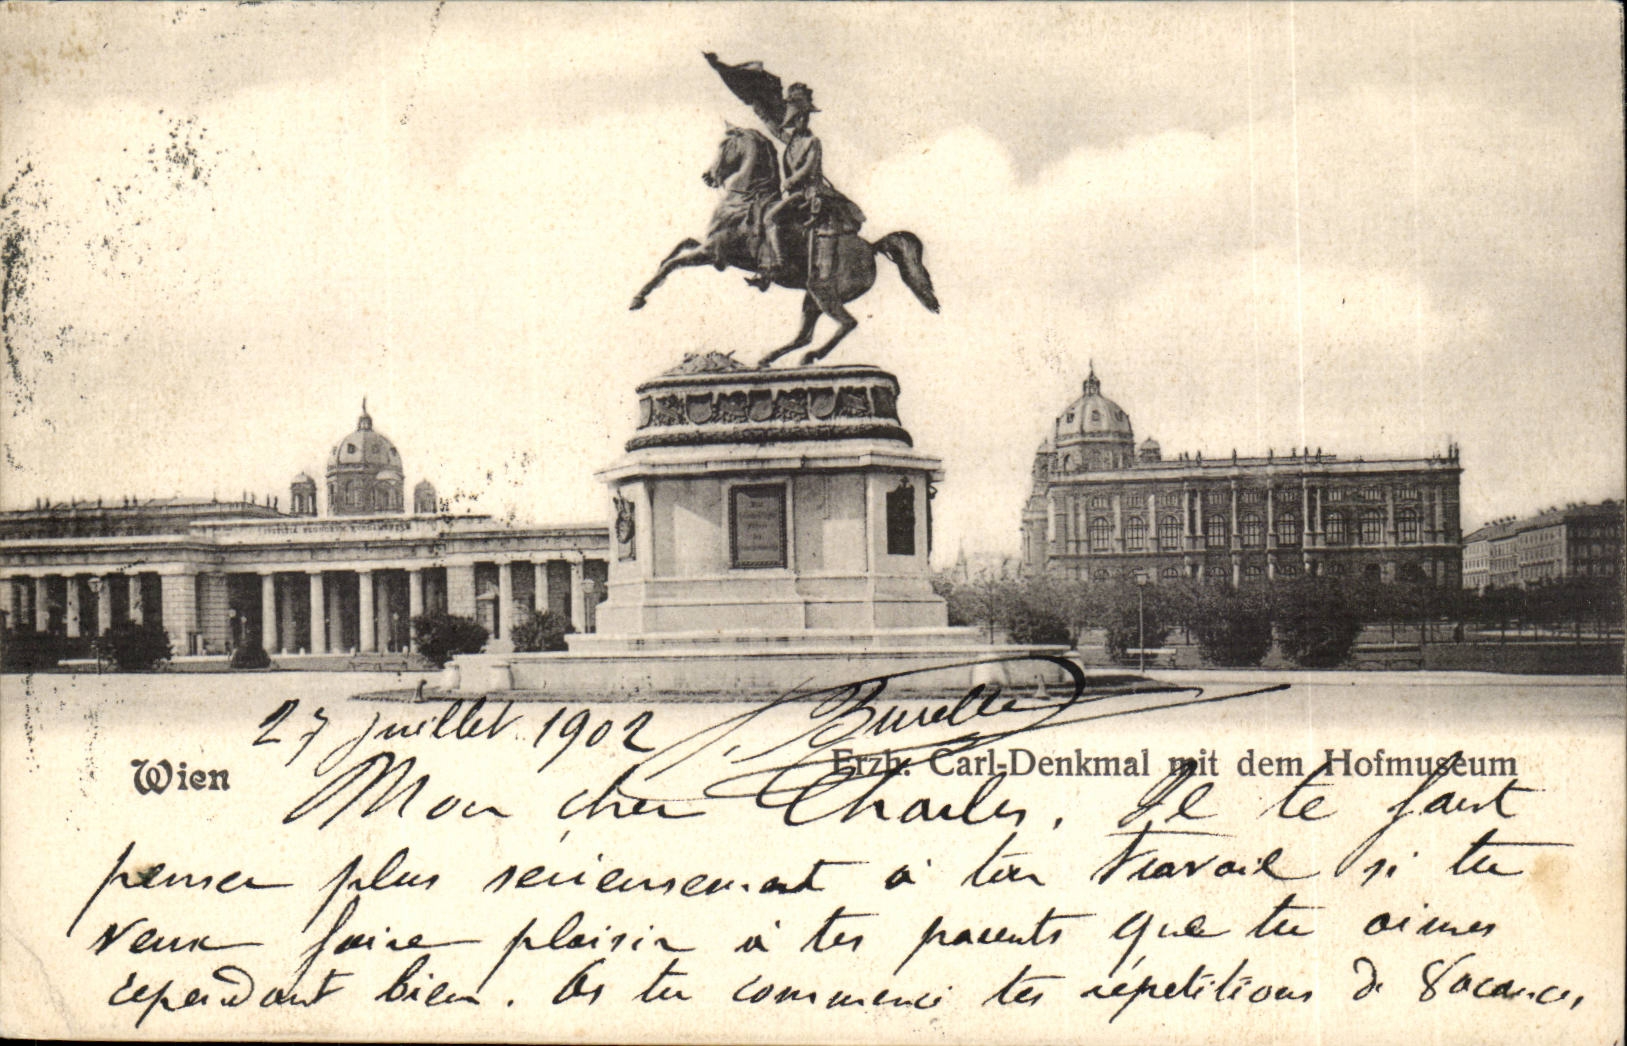 27 juillet 1902 Burelle
Wien
Erzh. Carl-Denkmal mit dem Hofmuseum
Mon cher Charles. Il te faut
penser plus serieusement à ton travail si tu
veux faire plaisir à tes parents que tu aimes
cependant bien. As tu commencé tes répetitions de vacances,